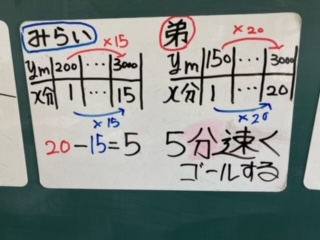 みらい
×15
ym 200 … 3000
x分 1 … 15
×15
20-15=5
弟
×20
ym 150 … 3000
x分 1 … 20
×20
5分速く
ゴールする